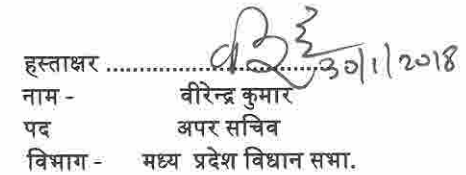 हस्ताक्षर ................................. 30/1/2018
नाम - वीरेन्द्र कुमार
पद अपर सचिव
विभाग - मध्य प्रदेश विधान सभा.